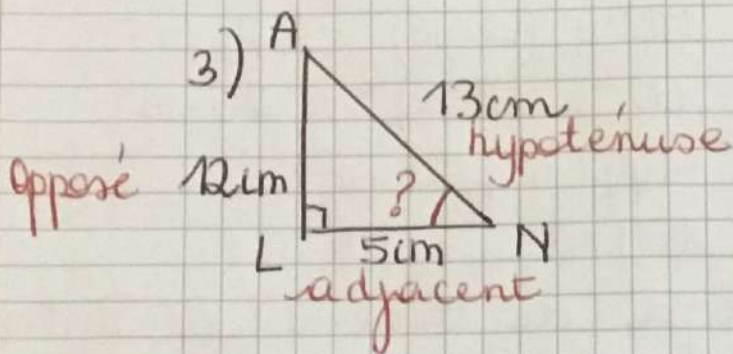 3) A
13cm
hypoténuse
opposé 12cm ?
L 5cm N
adjacent